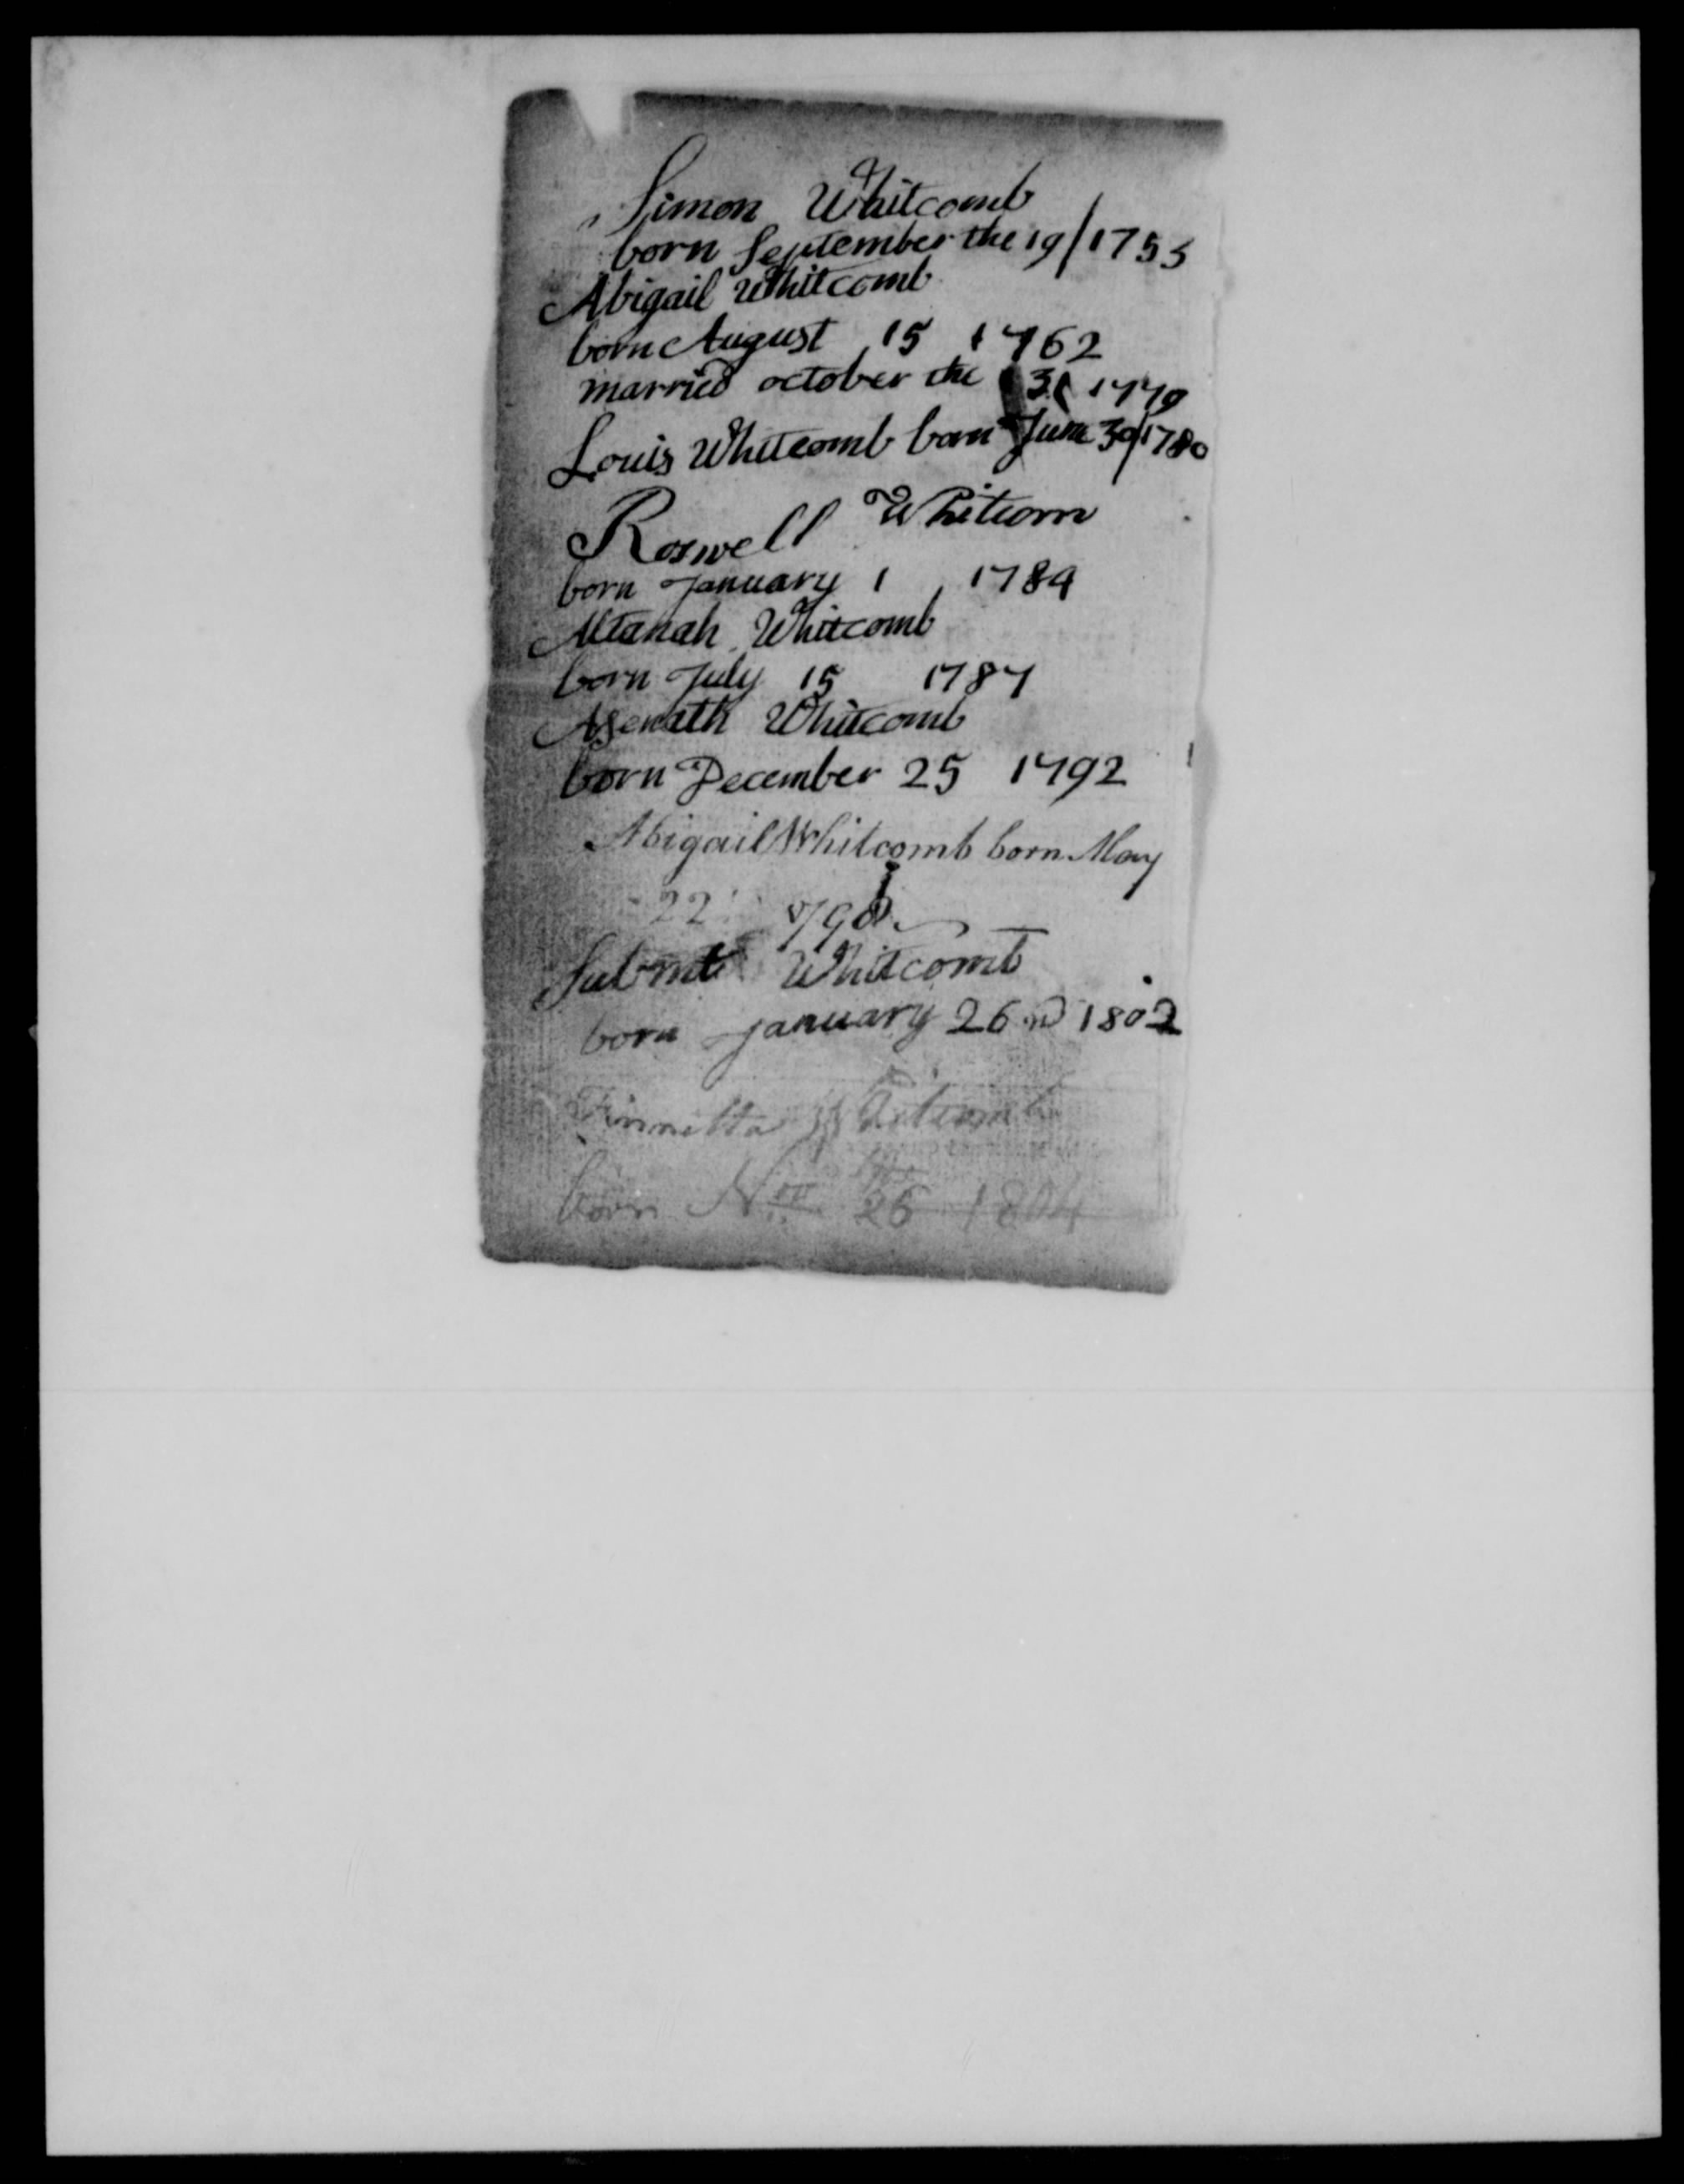 Simon Whitcomb
born September the 19/1755
Abigail Whitcomb
born August 15 1762
married october the 31 1779
Louis Whitcomb born June 30/1780
Roswell Whitcom
born January 1 1784
Altanah Whitcomb
born July 15 1787
Asenath Whitcomb
born December 25 1792
Abigail Whitcomb born May
22 1798
Submit Whitcomb
born January 26 1802
Whitcomb
born 26 1804